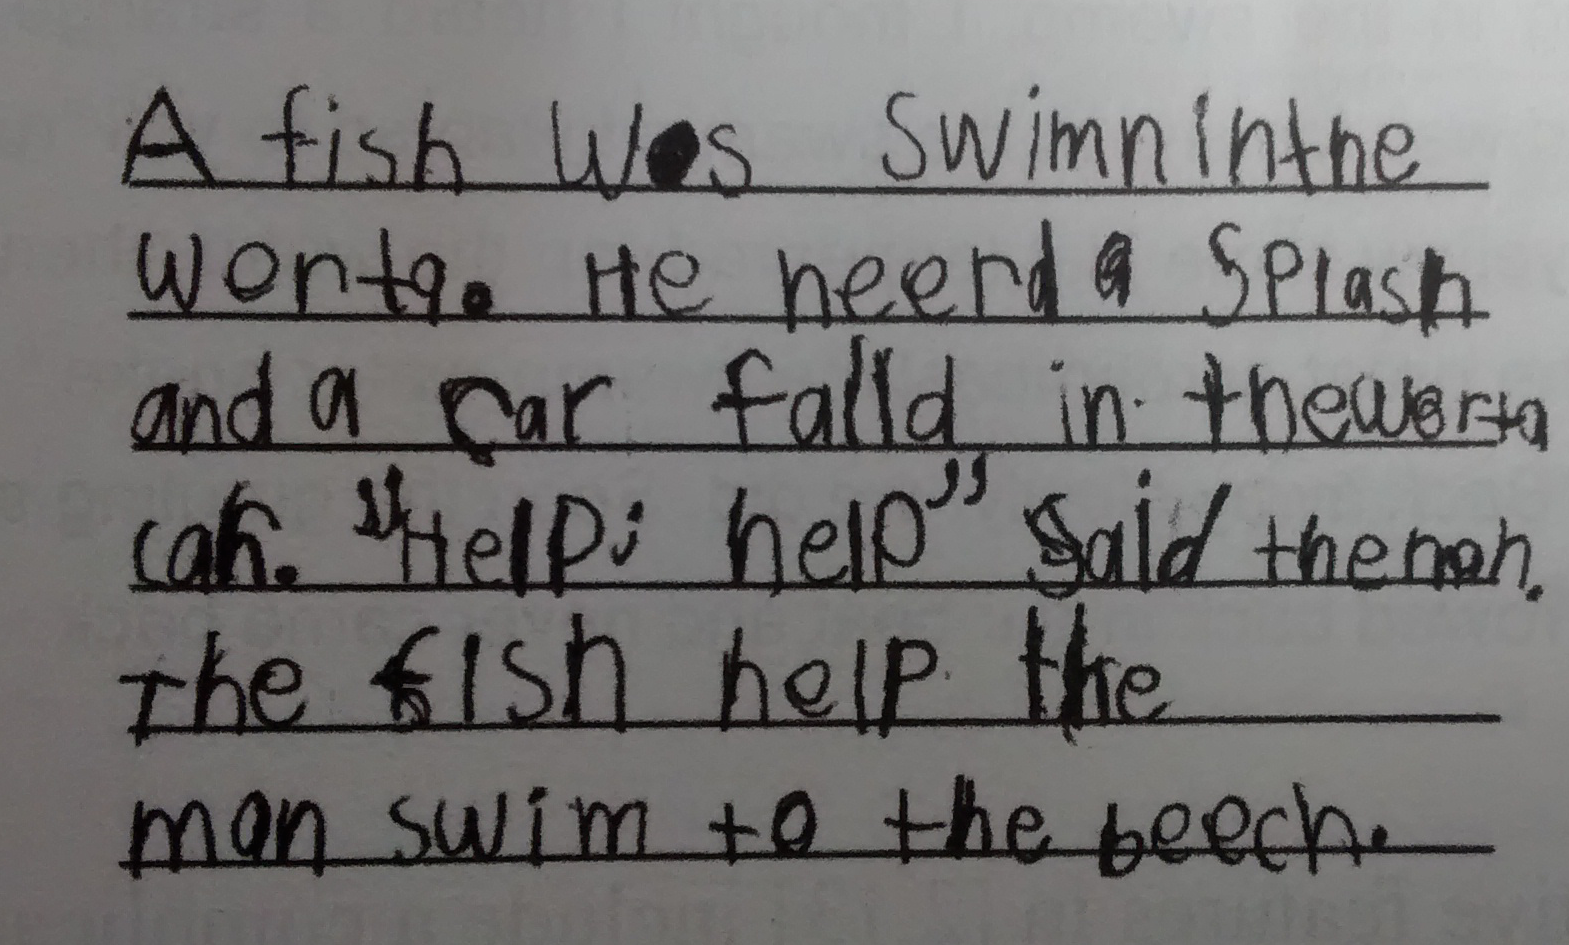 A fish Was Swimn inthe
worta. He heerd a Splash
and a car falld in thewarta
cah. "Help! help" Said theman.
The fish help the
man swim to the beech.